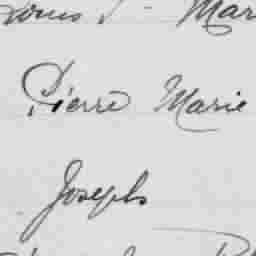 Mar
Pierre Marie
Joseph